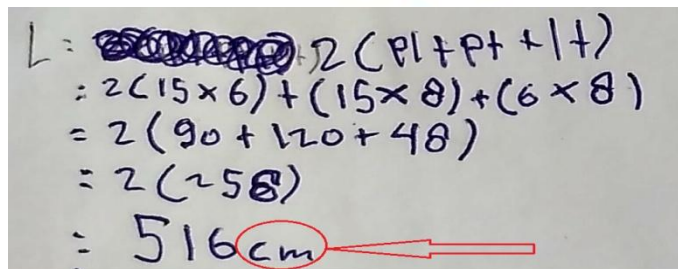 L = 2(pl + pt + lt)
= 2(15 × 6) + (15 × 8) + (6 × 8)
= 2(90 + 120 + 48)
= 2(258)
= 516 cm